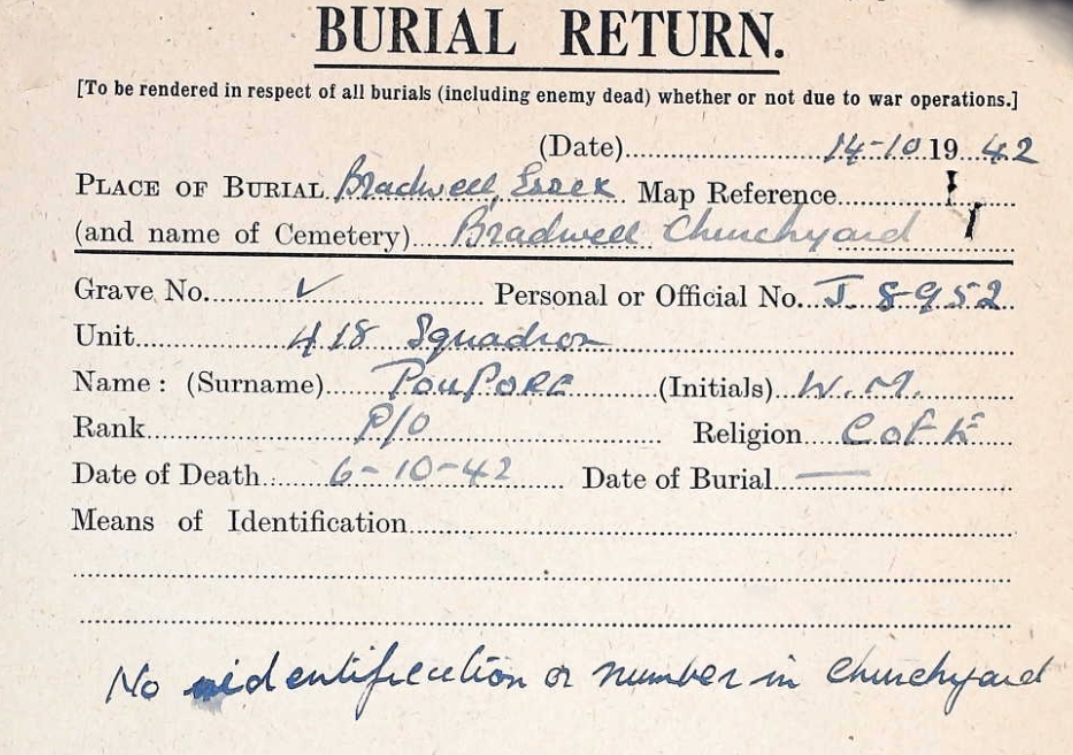 BURIAL RETURN.
[To be rendered in respect of all burials (including enemy dead) whether or not due to war operations.]
(Date) 14-10 19 42
PLACE OF BURIAL Bradwell, Essex Map Reference
(and name of Cemetery) Bradwell Churchyard
Grave No. ✓ Personal or Official No. J. 8952
Unit 418 Squadron
Name: (Surname) PouPoRE (Initials) W.M.
Rank P/O Religion C of E
Date of Death 6-10-42 Date of Burial —
Means of Identification
No identification or number in Churchyard